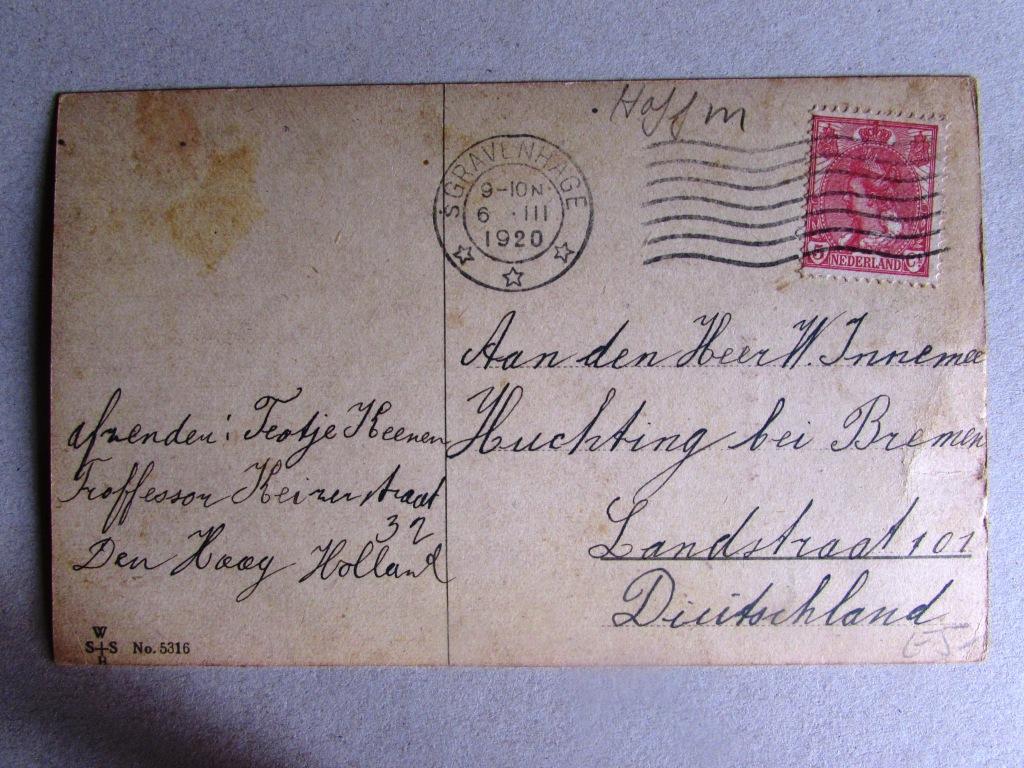 Hoffm
'SGRAVENHAGE
9-10N.
6 .III
1920
5 NEDERLAND Ct
Aan den Heer W. Innemee
Huchting bei Bremen
Landstraat 101
Duitschland
afzender: Teotje Keenen
Proffessor Keizerstraat
32
Den Haag Holland
W
S+S
B
No. 5316